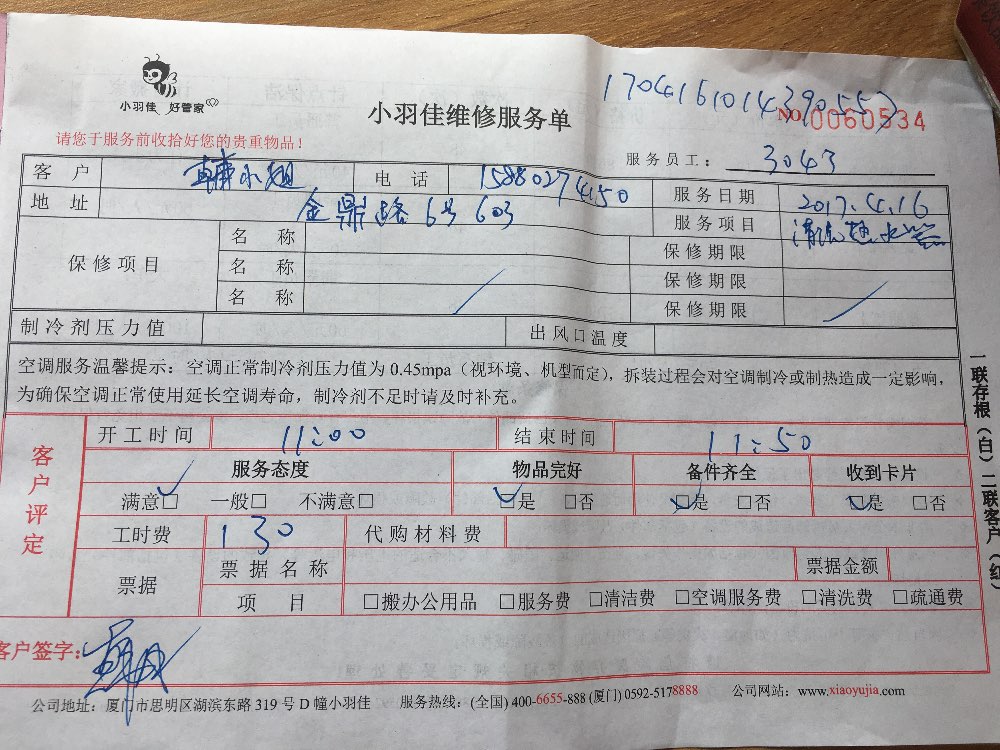 小羽佳 好管家
小羽佳维修服务单
17041610143905557
NO.0060534
请您于服务前收拾好您的贵重物品！
服务员工： 3043
客户 小姐 电话 15880274150 服务日期 2017.4.16
地址 金鼎路6号603 服务项目 清洗热水器
保修项目 名称 保修期限
名称 保修期限
名称 保修期限
制冷剂压力值 出风口温度
空调服务温馨提示：空调正常制冷剂压力值为 0.45mpa（视环境、机型而定），拆装过程会对空调制冷或制热造成一定影响，
为确保空调正常使用延长空调寿命，制冷剂不足时请及时补充。
客户评定
开工时间 11:00 结束时间 11:50
服务态度 物品完好 备件齐全 收到卡片
满意□ 一般□ 不满意□ □是 □否 □是 □否 □是 □否
工时费 130 代购材料费
票据 票据名称 票据金额
项目 □搬办公用品 □服务费 □清洁费 □空调服务费 □清洗费 □疏通费
客户签字：
公司地址：厦门市思明区湖滨东路 319 号 D 幢小羽佳 服务热线：(全国) 400-6655-888 (厦门) 0592-5178888 公司网站：www.xiaoyujia.com
一联存根（白）二联客户（红）